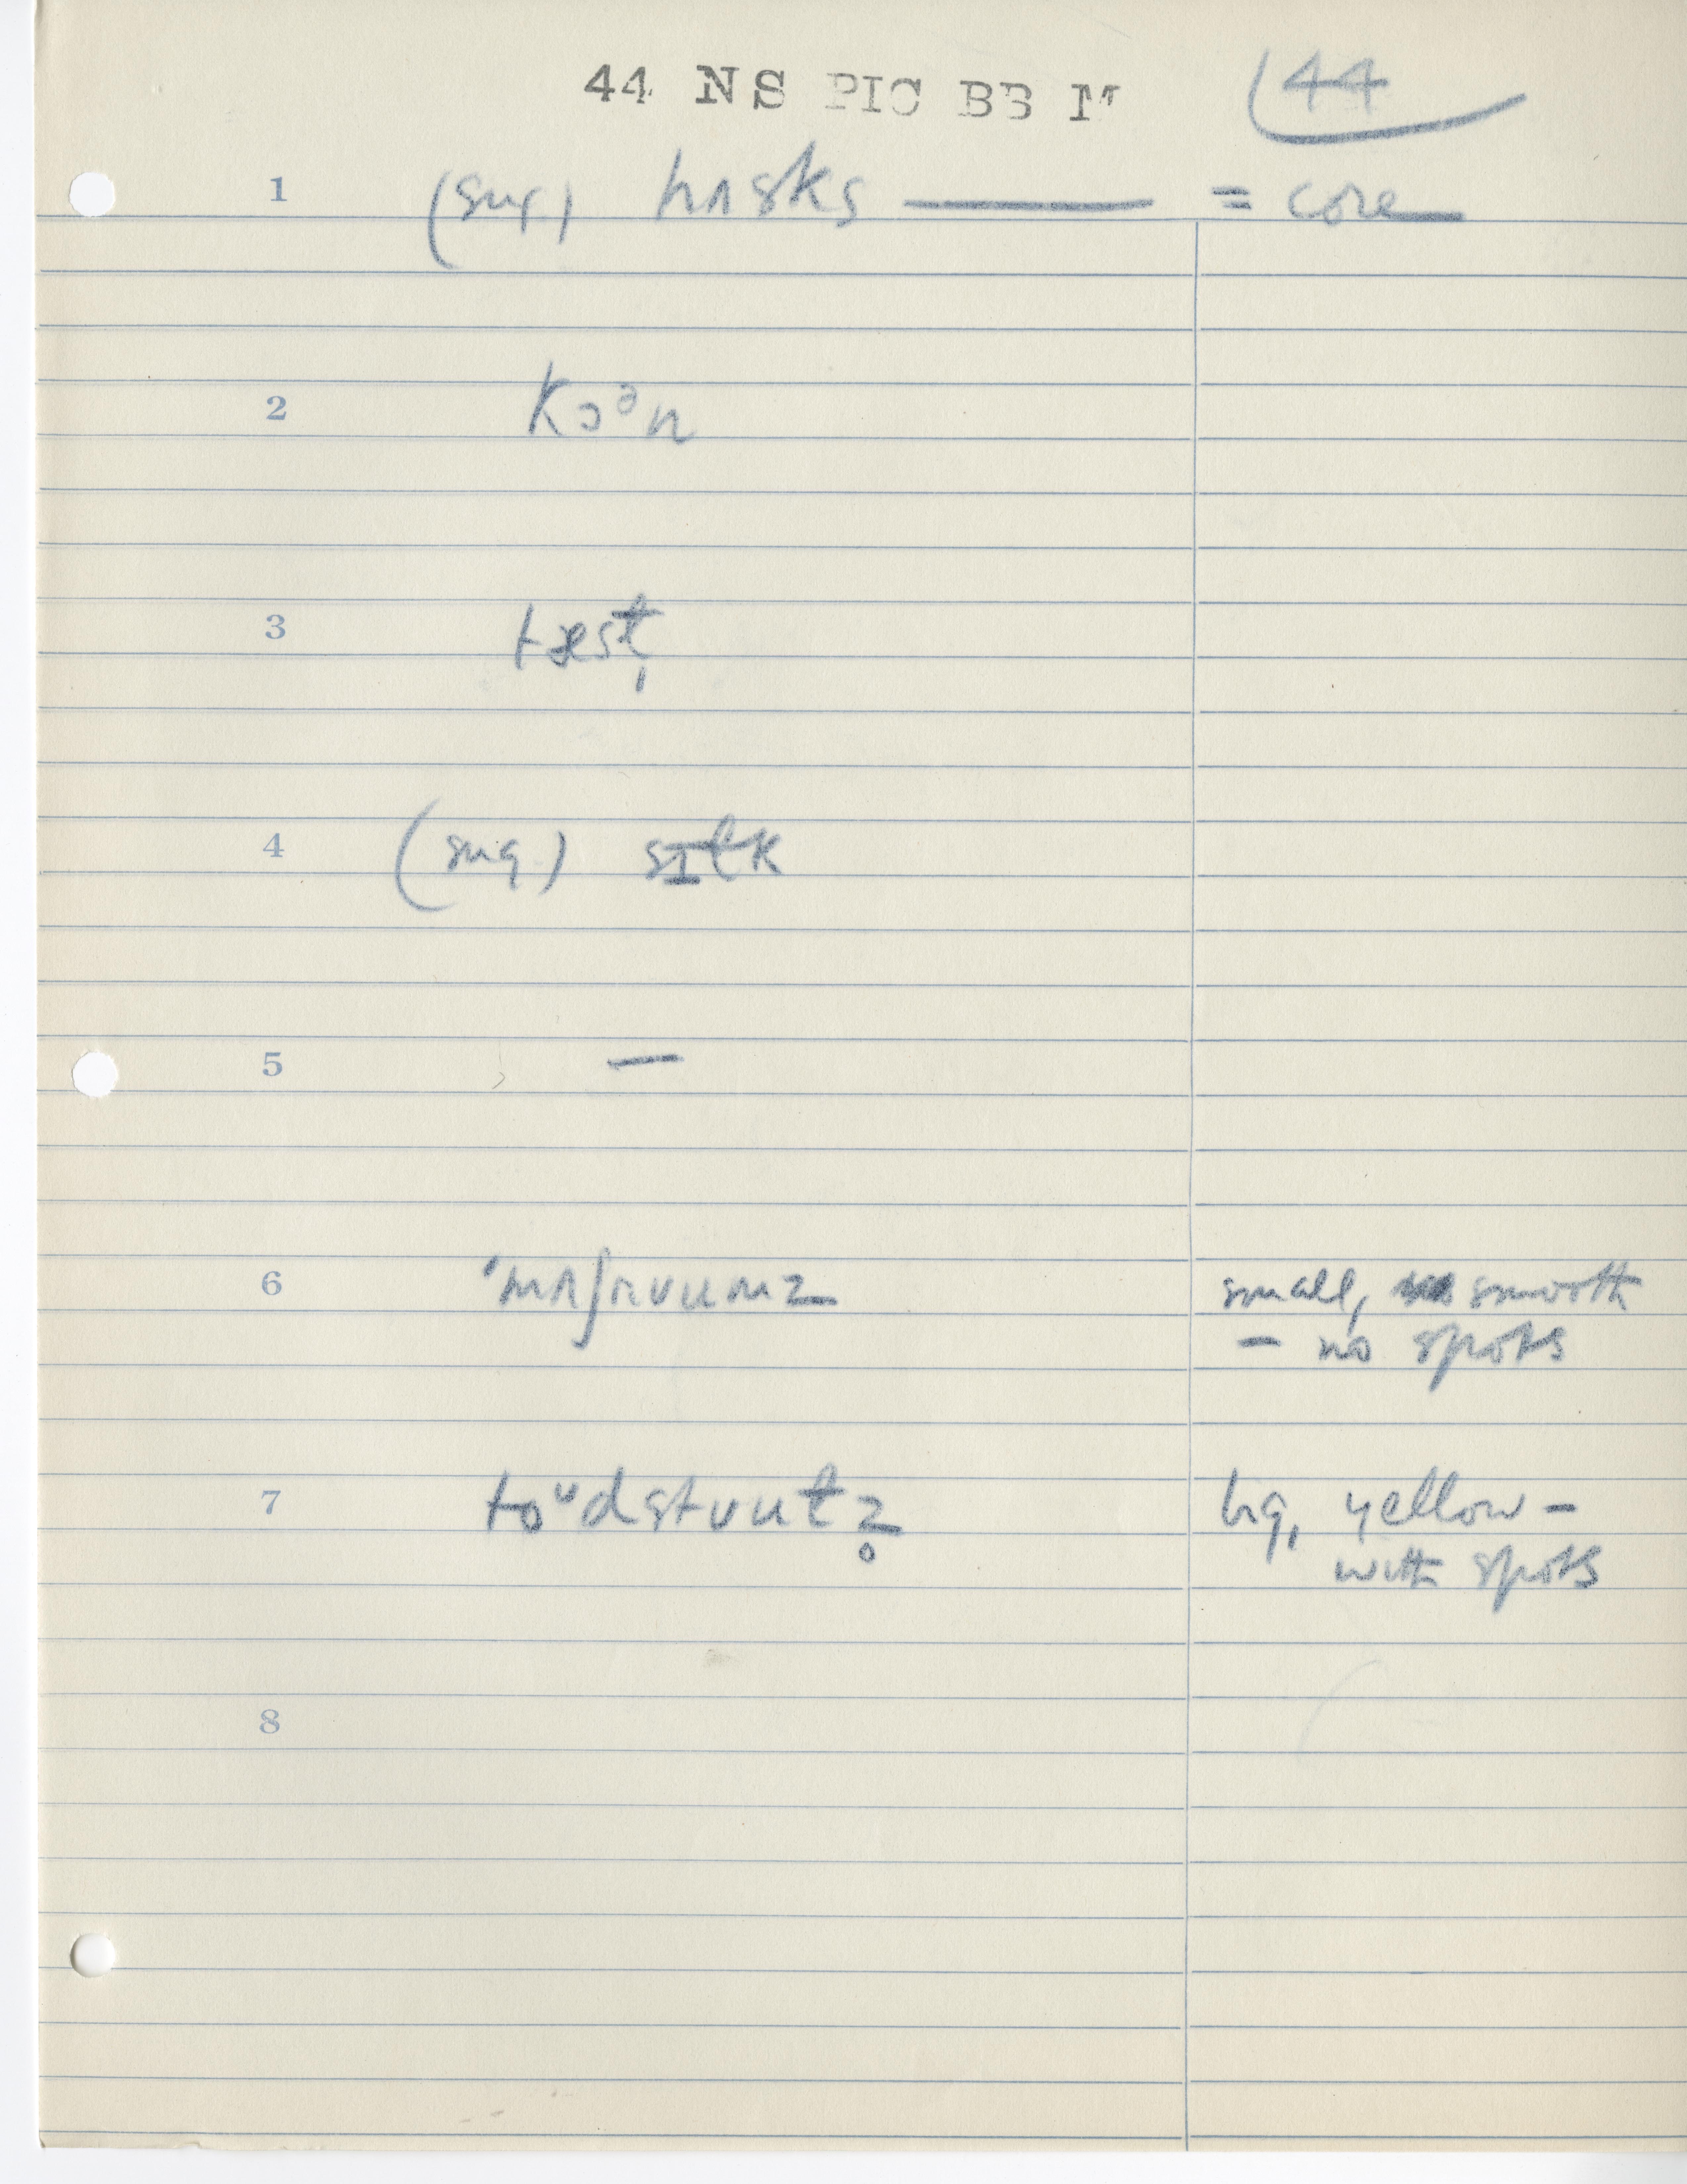 44 NS PIC BB M
44
1 (sug) hʌsks — = core
2 kɔᵊn
3 tæst̬
4 (sug) sɪɫk
5 —
6 'mʌʃrʊumz small, smooth
– no spots
7 toᵘdstʊuɫz̥ big, yellow –
with spots
8